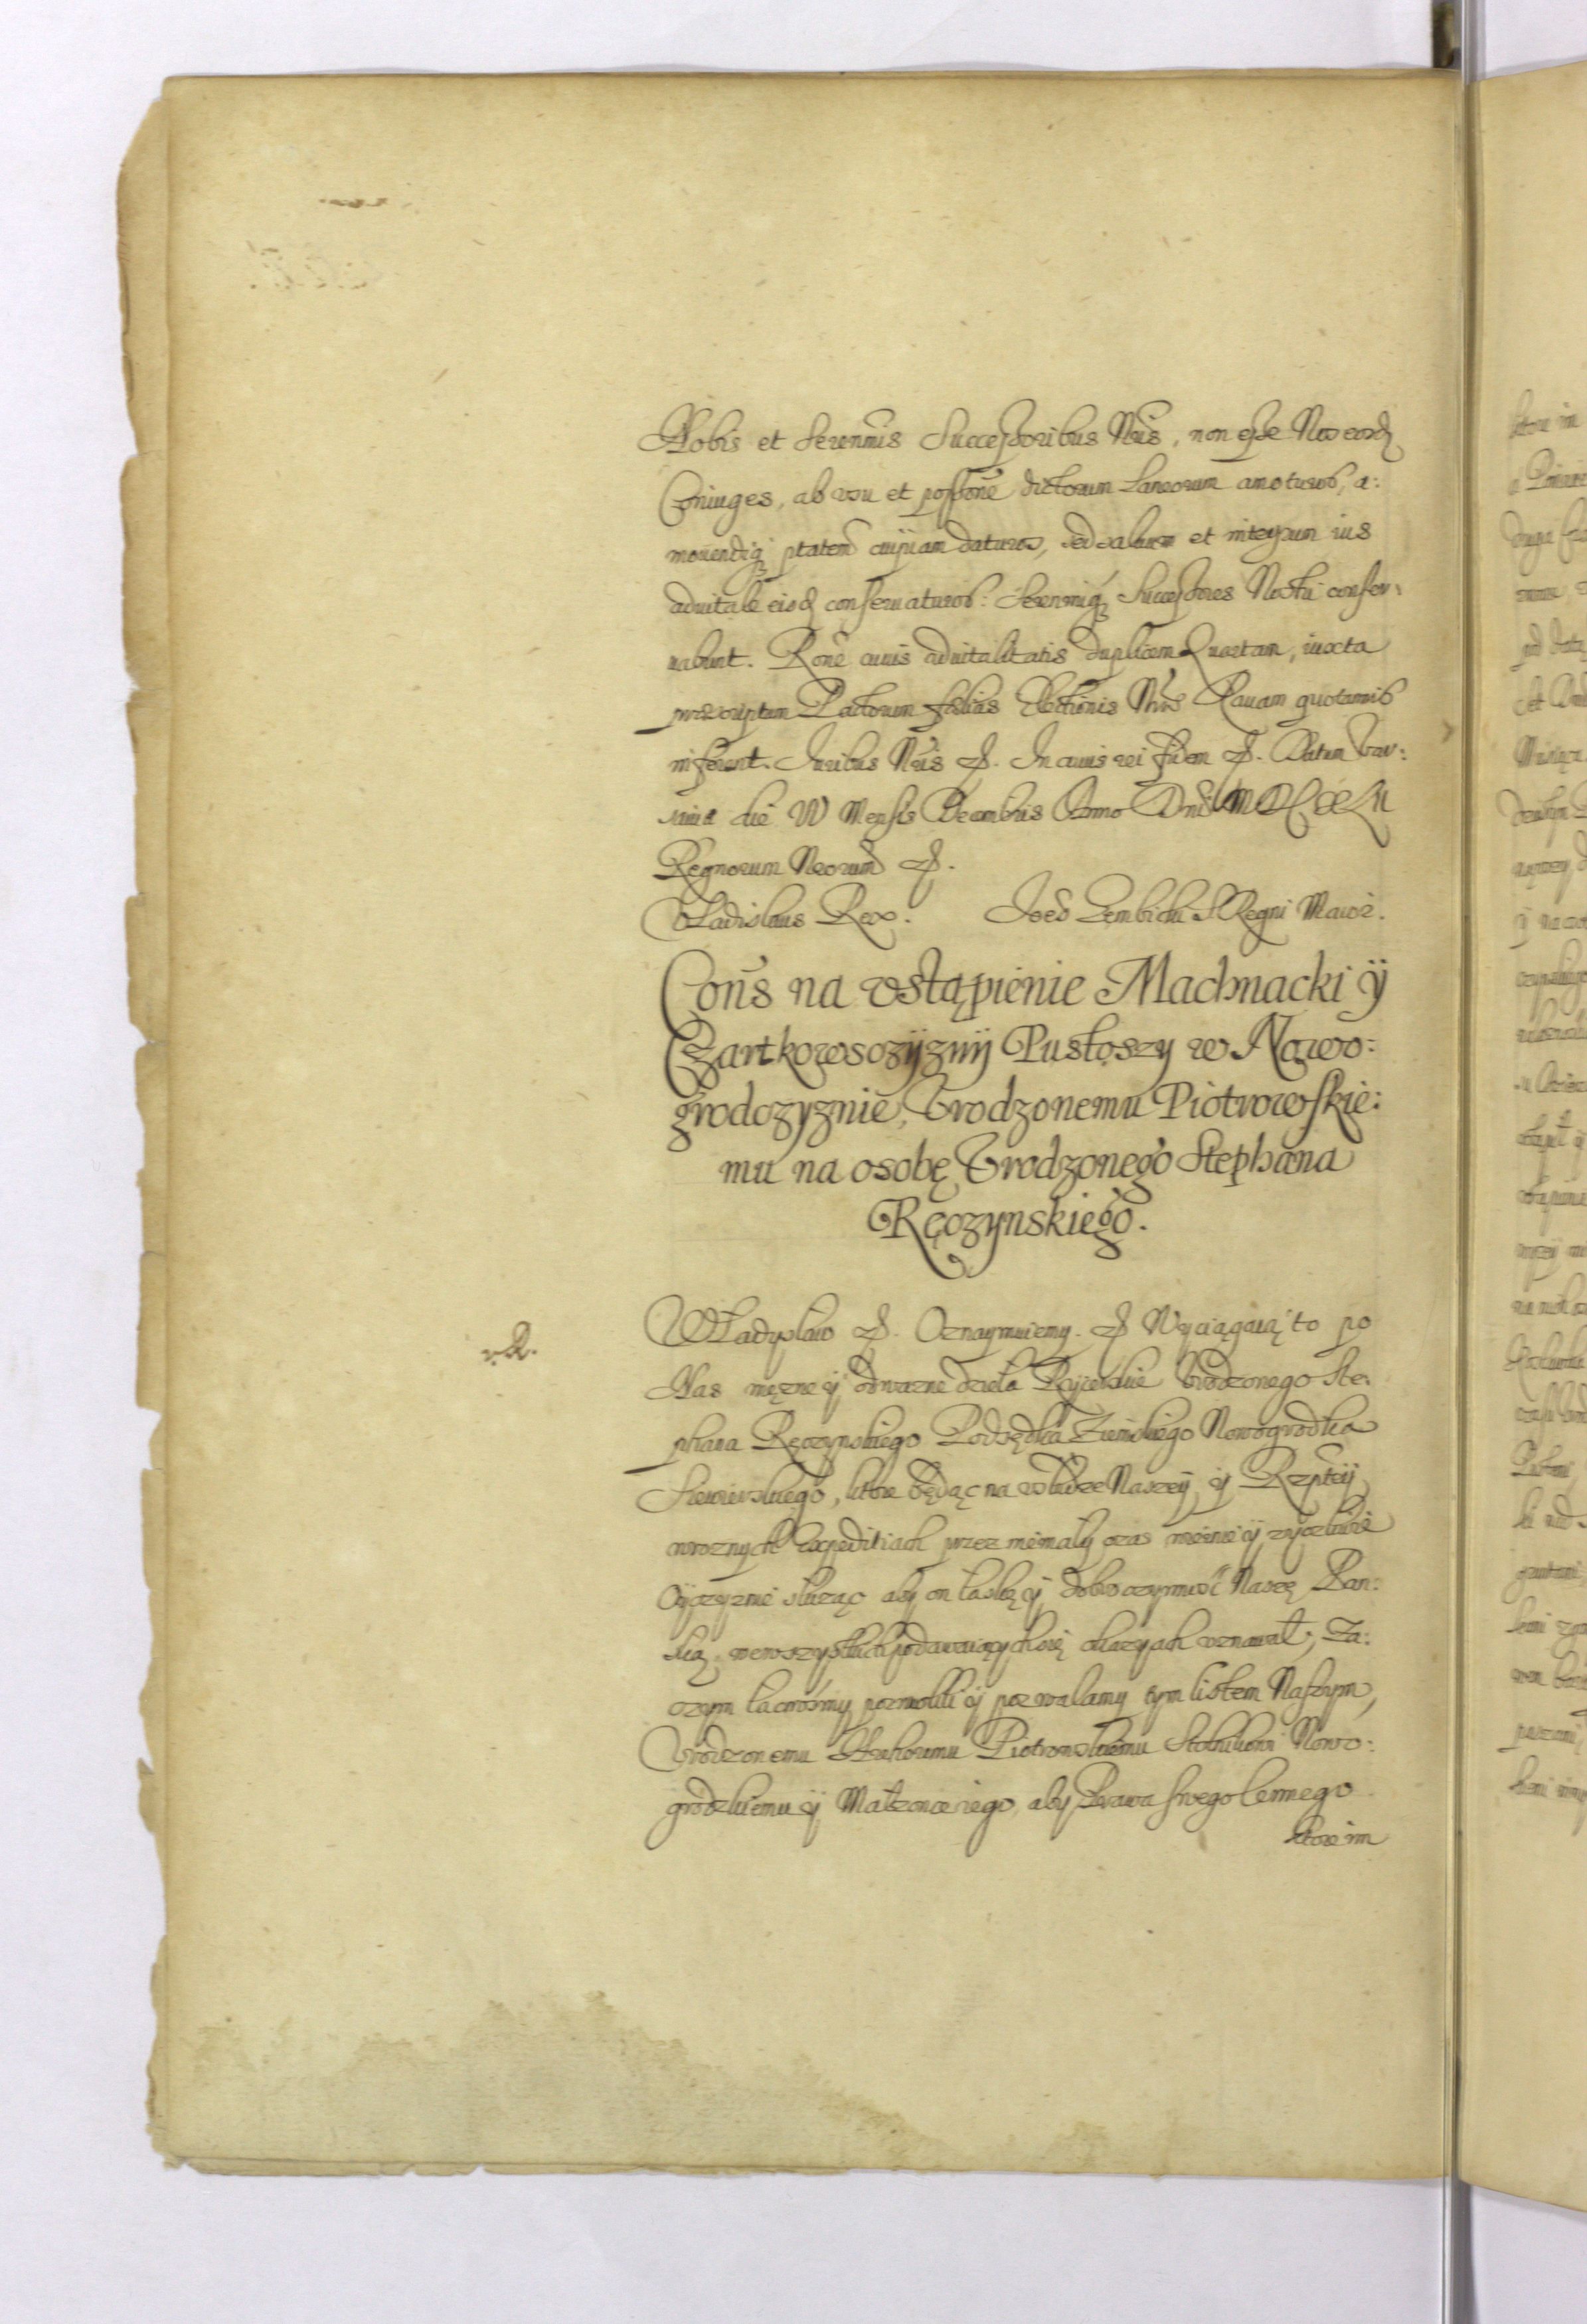 Nobis et Serenmis Successoribus Nris, non esse Nos eosd
Coniuges, ab vsu et possone dictorum Laneorum amoturos, a:
mouendiq ptatem cuipiam daturos, sed saluum et integrum ius
aduitale eisd conseruaturos: Serenmiq Successores Nostri conser:
uabunt. Rone cuius aduitalitatis duplicem Quartam, iuxta
praescriptum Pactorum foelicis Electionis Nrae Rauam quotannis
inferent. Iuribus Nris etc. In cuius rei fidem etc. Datum Var:
sauia die Mensis Decembris Anno Dni
Regnorum Nrorum etc.
Vladislaus Rex. Ioes Gembicki S Regni Maior.
Cons na vstąpienie Machnacki ÿ
Czartkowsczÿznÿ Pustoszy w Nowo:
grodczyznie, Vrodzonemu Piotrowskie:
mu na osobę Vrodzonego Stephana
Ręczynskiego.
Władysław etc. Oznaymuiemy. etc Wyciągaią to po
Nas męzne ÿ odwazne dzieła Rycerskie Vrodzonego Ste:
phana Ręczynskiego Podsędka Ziemskiego Nowogrodka
Siewierskiego, ktore będąc na vsłudze Naszeÿ ÿ Rzptey
wroznych expeditiach przez niemały czas wiernie ÿ zyczliwie
Oyczyznie słuząc aby on łaskę ÿ dobroczynnosc Naszę Pan:
ską, wewszystkich podawaiących się okazyach vznawał; Za:
czym łacnosmy pozwolili ÿ pozwalamy tym listem Naszym,
Vrodzonemu Piotrowskiemu Stolnikowi Nowo:
grodzkiemu ÿ Małzonce iego, aby Prawa swego lennego
ktore im